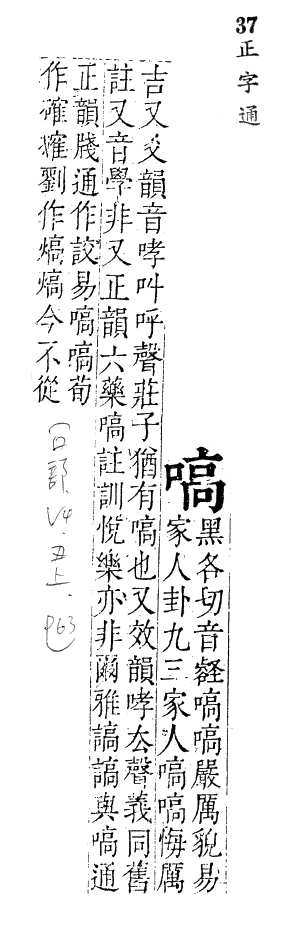 37
正字通
嗃
黑各切音壑嗃嗃嚴厲貌易
家人卦九三家人嗃嗃悔厲
吉又爻韻音哮叫呼聲莊子猶有嗃也又效韻哮厺聲義同舊
註又音學非又正韻六藥嗃註訓悅樂亦非爾雅謞謞與嗃通
正韻牋通作詨易嗃嗃荀
作確劉作熇熇今不從
(口部, V4.丑上. P63)